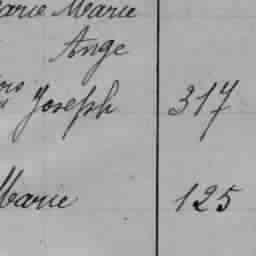 Marie Marie
Ange
Joseph 317
Marie 125